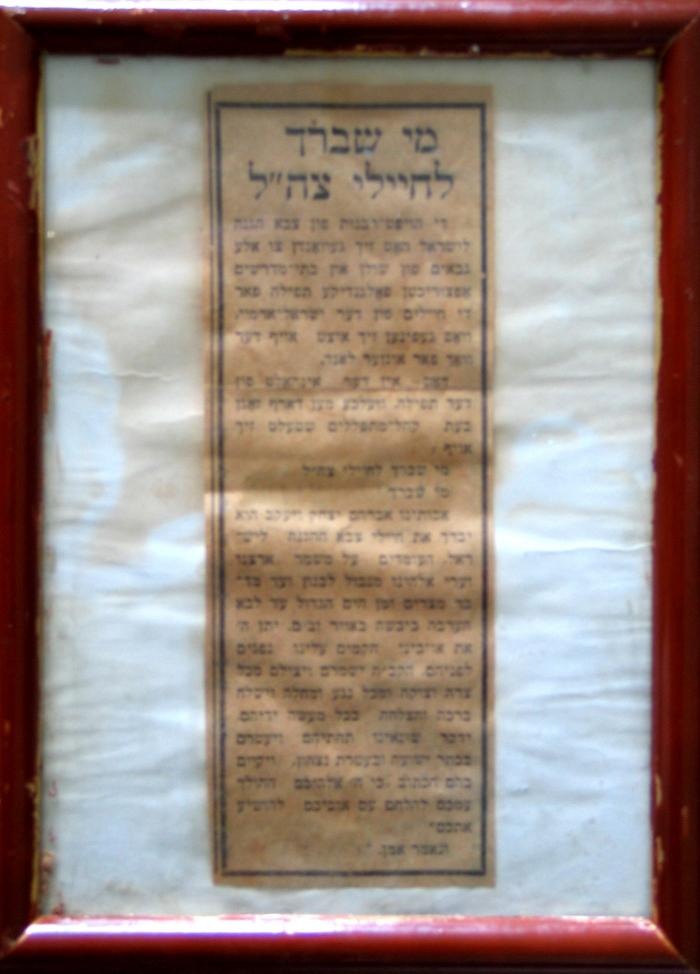 מי שברך
לחיילי צה״ל
די הויפט־רבנות פון צבא הגנה
לישראל האט זיך געווענדן צו אלע
גבאים פון שולן און בתי־מדרשים
אפצוריכטן פאלגנדיקע תפילה פאר
די חיילים פון דער ישראל־ארמיי,
וואס געפינען זיך איצט אויף דער
וואך פאר אונזער לאנד.
דאס איז דער אינהאלט פון
דער תפילה, וועלכע מען דארף זאגן
בעת קהל־מתפללים שטעלט זיך
אויף:
מי שברך לחיילי צה״ל
מי שברך
אבותינו אברהם יצחק ויעקב הוא
יברך את חיילי צבא ההגנה לישׂ־
ראל, העומדים על משמר ארצנו
וערי אלהינו מגבול לבנון ועד מד־
בר מצרים ומן הים הגדול עד לבא
הערבה ביבשה באויר ובים. יתן ה׳
את אויבינו הקמים עלינו נגפים
לפניהם. הקב״ה ישמרם ויצילם מכל
צרה וצוקה ומכל נגע ומחלה וישלח
ברכה והצלחה בכל מעשה ידיהם.
ידבר שונאינו תחתיהם ויעטרם
בכתר ישועה ובעטרת נצחון. ויקוים
בהם הכתוב כי ה׳ אלהיכם ההולך
עמכם להלחם עם אויביכם להושיע
אתכם״
ונאמר אמן.